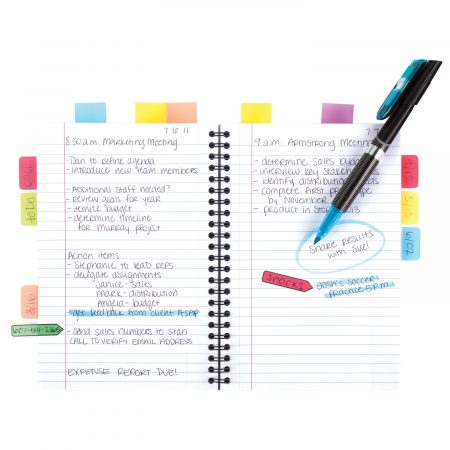 7 6 11
8:30 a.m. Marketing Meeting
- Dan to refine agenda
- introduce new team members
Additional staff needed?
- review goals for year
- itemize budget
- determine timeline
for Murray project
Action items
- Stephanie to lead reps
- delegate assignments
Janice - sales
Mark - distribution
Angela - budget
- get feedback from client ASAP
- Send sales numbers to Stan
CALL TO VERIFY EMAIL ADDRESS
EXPENSE REPORT DUE!
7 7
9 a.m. Armstrong Meeting
- determine sales budget
- interview key
- identify distribution
- complete first
by November
- product in
Share results
with Sue!
SNACKS
Josh's Soccer
Practice 5 P.M.
5/10